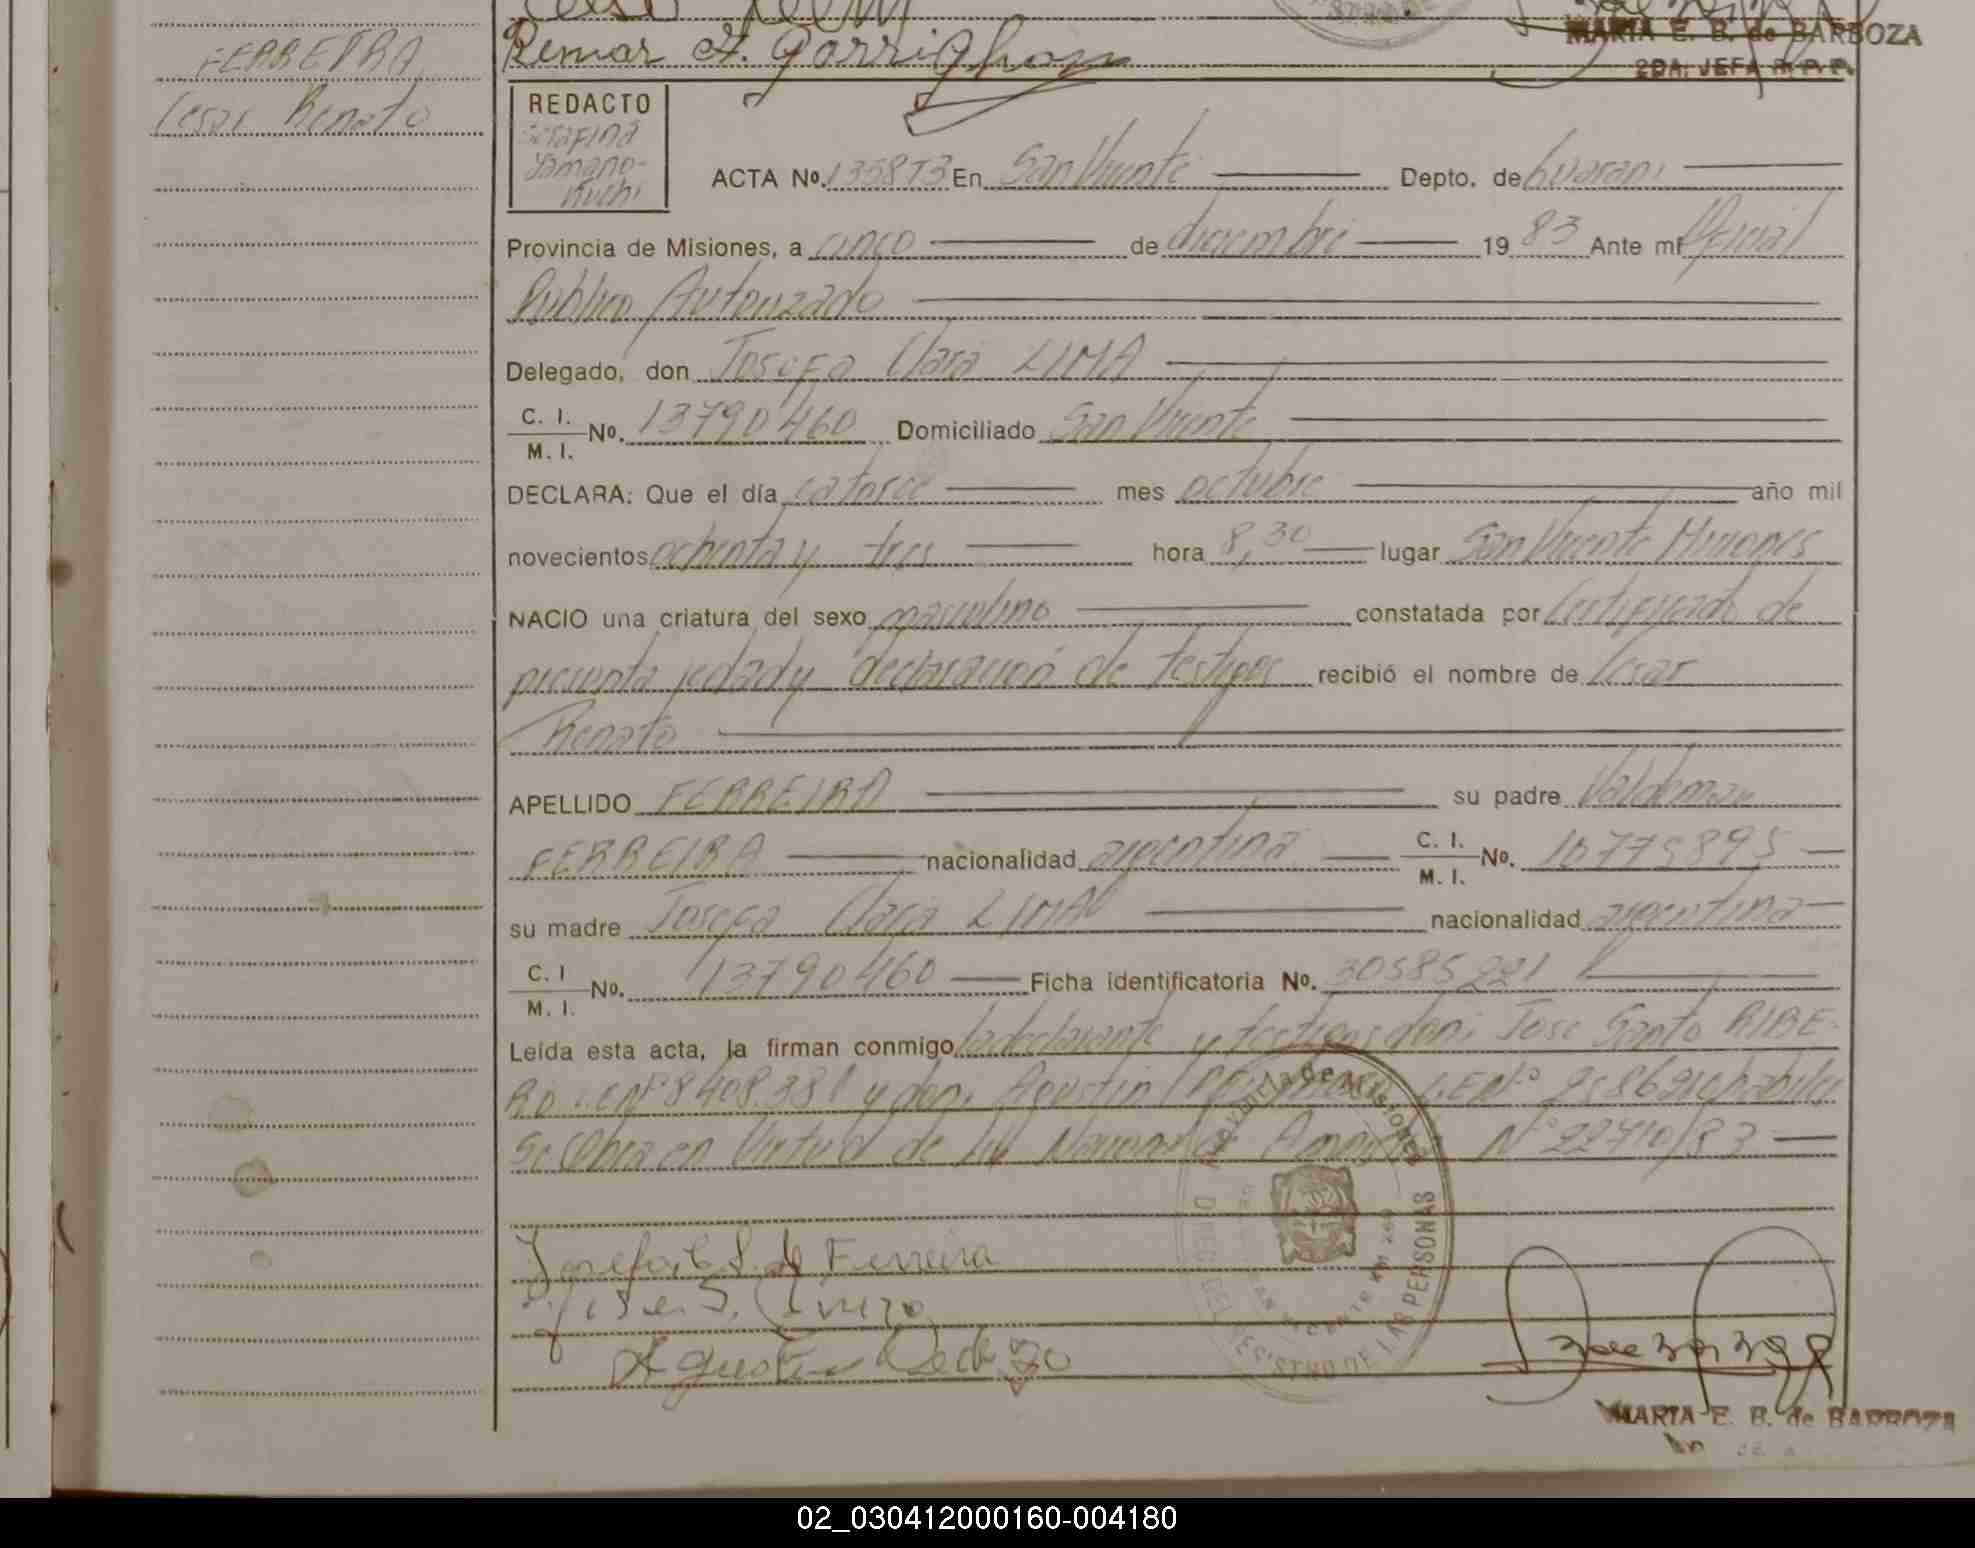 FERREIRA
Cesar Renato
MARIA E. B. de BARBOZA
2DA. JEFA R.P.P.
REDACTO
Serafina
Yamano-
kuchi
ACTA Nº. 135873 En San Vicente Depto. de Guarani
Provincia de Misiones, a cinco de diciembre 19 83 Ante mí Oficial
Publico Autorizado
Delegado, don Josefa Clara LIMA
C. I.
M. I. Nº. 13790460 Domiciliado San Vicente
DECLARA: Que el día catorce mes octubre año mil
novecientos ochenta y tres hora 8,30 lugar San Vicente Misiones
NACIO una criatura del sexo masculino constatada por Certificado de
presunta edad y declaración de testigos recibió el nombre de Cesar
Renato
APELLIDO FERREIRA su padre Valdemar
FERREIRA nacionalidad argentina C. I.
M. I. Nº. 10775895
su madre Josefa Clara LIMA nacionalidad argentina
C. I
M. I. Nº. 13790460 Ficha identificatoria Nº. 30585221
Leída esta acta, la firman conmigo la declarante y testigos don: Jose Santo RIBE-
RO Nº 8408.381 y don: Agustin
Se Labra en Virtud de Ley Nacional de Amnistia Nº 22710/83
Josefa C L de Ferreira
Jose S.
Agustin
Provincia de Misiones
DIREC. DEL REGISTRO DE LAS PERSONAS
MARIA E. B. de BARBOZA
02_030412000160-004180